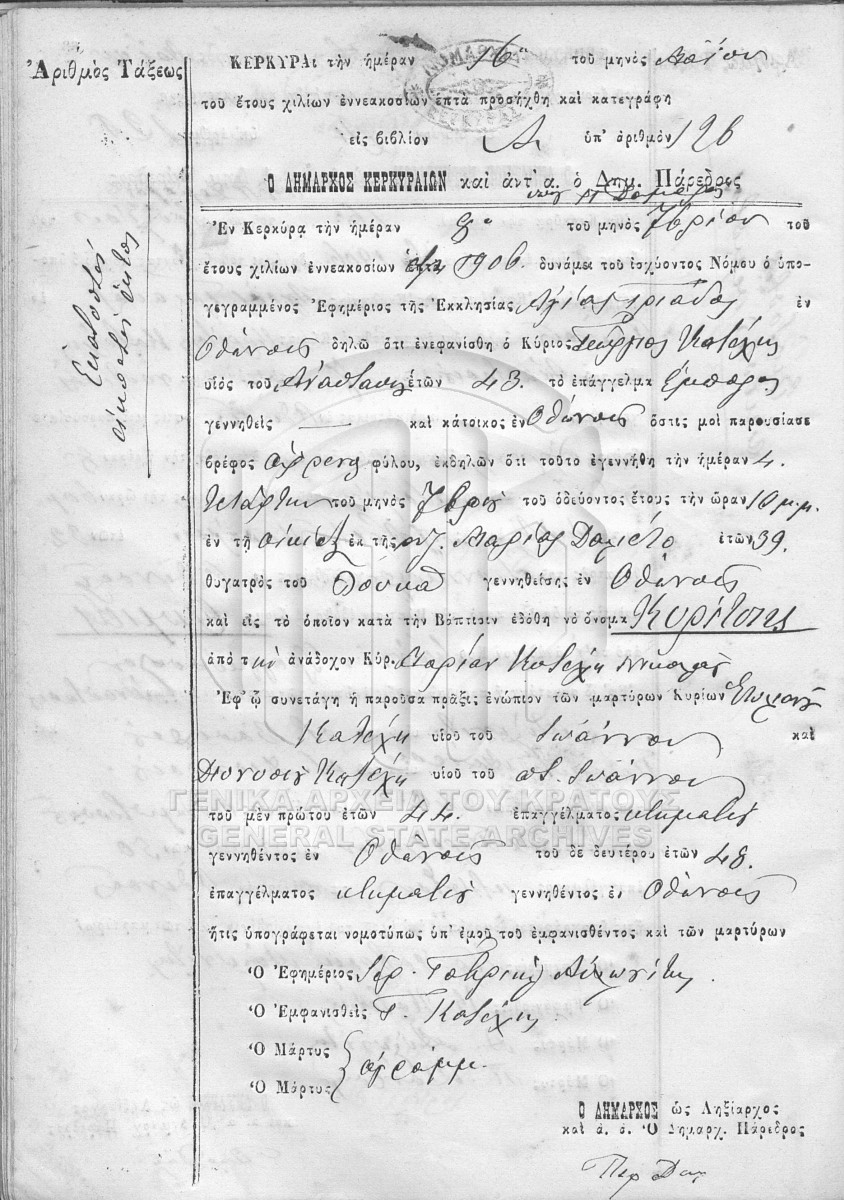 Ἀριθμὸς Τάξεως
Ἑκατοστὴ
εἰκοστὴ ἕκτη
ΚΕΡΚΥΡΑι τὴν ἡμέραν 16η τοῦ μηνὸς Μαΐου
τοῦ ἔτους χιλίων ἐννεακοσίων ἑπτὰ προσήχθη καὶ κατεγράφη
εἰς βιβλίον Α ὑπ' ἀριθμὸν 126
Ο ΔΗΜΑΡΧΟΣ ΚΕΡΚΥΡΑΙΩΝ καὶ ἀντ' α. ὁ Δημ. Πάρεδρος
Ἐν Κερκύρᾳ τὴν ἡμέραν 8η τοῦ μηνὸς 7βρίου τοῦ
ἔτους χιλίων ἐννεακοσίων 1906. δυνάμει τοῦ ἰσχύοντος Νόμου ὁ ὑπο-
γεγραμμένος Ἐφημέριος τῆς Ἐκκλησίας Ἁγίας Τριάδος ἐν
Ὀθωνοῖς δηλῶ ὅτι ἐνεφανίσθη ὁ Κύριος Γεώργιος Κατέχης
υἱὸς τοῦ Ἀναστασίου ἐτῶν 43. τὸ ἐπάγγελμα ἔμπορος
γεννηθεὶς — καὶ κάτοικος ἐν Ὀθωνοῖς ὅστις μοὶ παρουσίασε
βρέφος ἄρρενος φύλου, ἐκδηλῶν ὅτι τοῦτο ἐγεννήθη τὴν ἡμέραν 4.
τετάρτην τοῦ μηνὸς 7βρίου τοῦ ὁδεύοντος ἔτους τὴν ὥραν 10 μ.μ.
ἐν τῇ οἰκίᾳ ἐκ τῆς συζ. Μαρίας ἐτῶν 39.
θυγατρὸς τοῦ Λουκᾶ γεννηθείσης ἐν Ὀθωνοῖς
καὶ εἰς τὸ ὁποῖον κατὰ τὴν Βάπτισιν ἐδόθη τὸ ὄνομα Κυρίτσης
ἀπὸ τὴν ἀνάδοχον Κύρ. Μαρίαν Κατέχη Νικολάου
Ἐφ' ᾧ συνετάγη ἡ παροῦσα πρᾶξις ἐνώπιον τῶν μαρτύρων Κυρίων
Κατέχη υἱοῦ τοῦ Ἰωάννου καὶ
Διονυσίου Κατέχη υἱοῦ τοῦ ποτ. Ἰωάννου
τοῦ μὲν πρώτου ἐτῶν 44. ἐπαγγέλματος κτηματίου
γεννηθέντος ἐν Ὀθωνοῖς τοῦ δὲ δευτέρου ἐτῶν 48.
ἐπαγγέλματος κτηματίου γεννηθέντος ἐν Ὀθωνοῖς
ἥτις ὑπογράφεται νομοτύπως ὑπ' ἐμοῦ τοῦ ἐμφανισθέντος καὶ τῶν μαρτύρων
Ὁ Ἐφημέριος Ἱερ.
Ὁ Ἐμφανισθεὶς Γ. Κατέχης
Ὁ Μάρτυς
ἀγράμμ.
Ὁ Μάρτυς
Ο ΔΗΜΑΡΧΟΣ ὡς Ληξίαρχος
καὶ ἀ. ἀ. Ὁ Δημαρχ. Πάρεδρος
ΓΕΝΙΚΑ ΑΡΧΕΙΑ ΤΟΥ ΚΡΑΤΟΥΣ
GENERAL STATE ARCHIVES